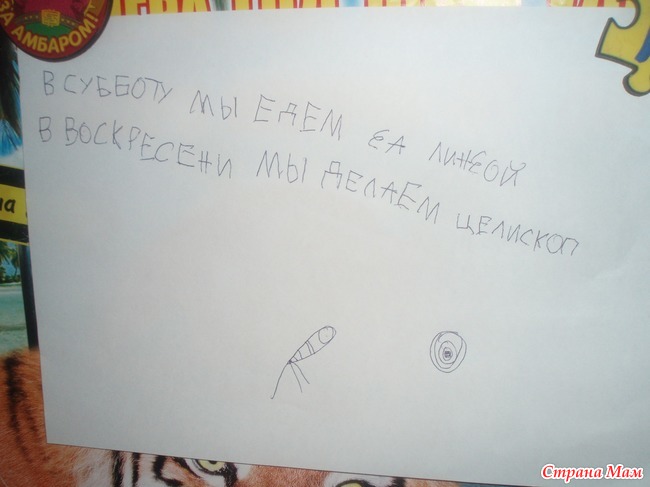 ЗА АМБАРОМ!
В СУББОТУ МЫ ЕДЕМ ЗА ЛИНЗОЙ
В ВОСКРЕСЕНИ МЫ ДЕЛАЕМ ЦЕЛИСКОП
Страна Мам